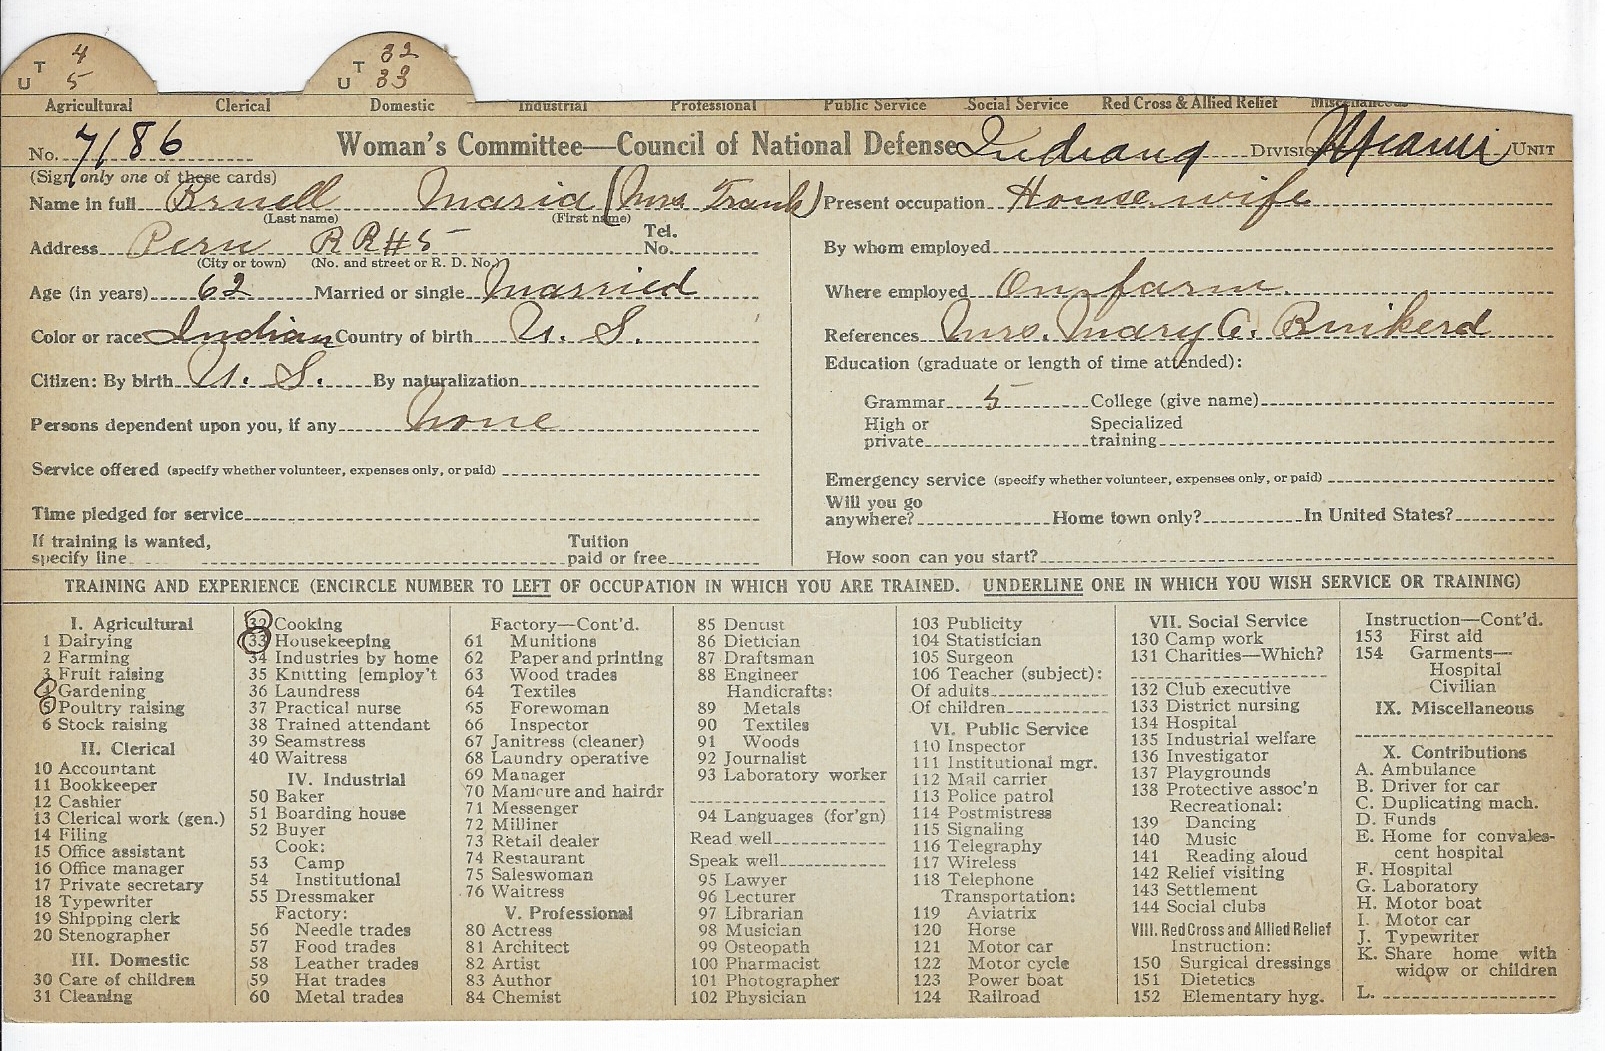 T 4
U 5
T 32
U 33
Agricultural Clerical Domestic Industrial Professional Public Service Social Service Red Cross & Allied Relief Miscellaneous
No. 7186 Woman's Committee—Council of National Defense Indiana DIVISION Miami UNIT
(Sign only one of these cards)
Name in full Bruell Maria (Mrs Frank)
(Last name) (First name)
Address Peru RR#5 Tel. No.
(City or town) (No. and street or R. D. No.)
Age (in years) 62 Married or single Married
Color or race Indian Country of birth U. S.
Citizen: By birth U. S. By naturalization
Persons dependent upon you, if any None
Service offered (specify whether volunteer, expenses only, or paid)
Time pledged for service
If training is wanted, specify line Tuition paid or free
Present occupation House wife
By whom employed
Where employed On farm
References Mrs. Mary C. Buikerd
Education (graduate or length of time attended):
Grammar 5 College (give name)
High or private Specialized training
Emergency service (specify whether volunteer, expenses only, or paid)
Will you go anywhere? Home town only? In United States?
How soon can you start?
TRAINING AND EXPERIENCE (ENCIRCLE NUMBER TO LEFT OF OCCUPATION IN WHICH YOU ARE TRAINED. UNDERLINE ONE IN WHICH YOU WISH SERVICE OR TRAINING)
I. Agricultural
1 Dairying
2 Farming
3 Fruit raising
4 Gardening
5 Poultry raising
6 Stock raising
II. Clerical
10 Accountant
11 Bookkeeper
12 Cashier
13 Clerical work (gen.)
14 Filing
15 Office assistant
16 Office manager
17 Private secretary
18 Typewriter
19 Shipping clerk
20 Stenographer
III. Domestic
30 Care of children
31 Cleaning
32 Cooking
33 Housekeeping
34 Industries by home
35 Knitting [employ't
36 Laundress
37 Practical nurse
38 Trained attendant
39 Seamstress
40 Waitress
IV. Industrial
50 Baker
51 Boarding house
52 Buyer
Cook:
53 Camp
54 Institutional
55 Dressmaker
Factory:
56 Needle trades
57 Food trades
58 Leather trades
59 Hat trades
60 Metal trades
Factory—Cont'd.
61 Munitions
62 Paper and printing
63 Wood trades
64 Textiles
65 Forewoman
66 Inspector
67 Janitress (cleaner)
68 Laundry operative
69 Manager
70 Manicure and hairdr
71 Messenger
72 Milliner
73 Retail dealer
74 Restaurant
75 Saleswoman
76 Waitress
V. Professional
80 Actress
81 Architect
82 Artist
83 Author
84 Chemist
85 Dentist
86 Dietician
87 Draftsman
88 Engineer
Handicrafts:
89 Metals
90 Textiles
91 Woods
92 Journalist
93 Laboratory worker
94 Languages (for'gn)
Read well
Speak well
95 Lawyer
96 Lecturer
97 Librarian
98 Musician
99 Osteopath
100 Pharmacist
101 Photographer
102 Physician
103 Publicity
104 Statistician
105 Surgeon
106 Teacher (subject):
Of adults
Of children
VI. Public Service
110 Inspector
111 Institutional mgr.
112 Mail carrier
113 Police patrol
114 Postmistress
115 Signaling
116 Telegraphy
117 Wireless
118 Telephone
Transportation:
119 Aviatrix
120 Horse
121 Motor car
122 Motor cycle
123 Power boat
124 Railroad
VII. Social Service
130 Camp work
131 Charities—Which?
132 Club executive
133 District nursing
134 Hospital
135 Industrial welfare
136 Investigator
137 Playgrounds
138 Protective assoc'n
Recreational:
139 Dancing
140 Music
141 Reading aloud
142 Relief visiting
143 Settlement
144 Social clubs
VIII. Red Cross and Allied Relief
Instruction:
150 Surgical dressings
151 Dietetics
152 Elementary hyg.
Instruction—Cont'd.
153 First aid
154 Garments—
Hospital
Civilian
IX. Miscellaneous
X. Contributions
A. Ambulance
B. Driver for car
C. Duplicating mach.
D. Funds
E. Home for convales-
cent hospital
F. Hospital
G. Laboratory
H. Motor boat
I. Motor car
J. Typewriter
K. Share home with
widow or children
L.